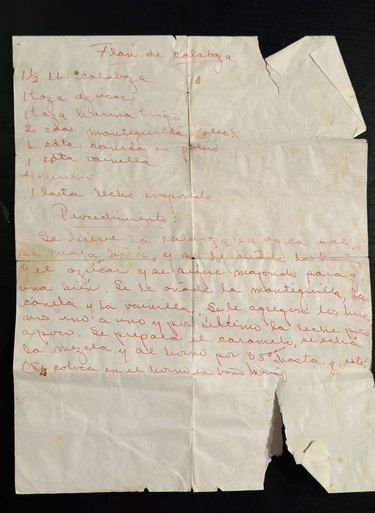 Flan de calabaza
1 ½ lb. calabaza
1 taza azucar
1 taza harina trigo
2 cdas. mantequilla
1 cdta. canela en polvo
1 cdta vainilla
huevo
1 lata leche evaporada
Procedimiento:
Se hierve la calabaza en agua sal,
se maja bien, y se le añade la harina
y el azúcar y se sigue majando para q.
una bien. Se le añade la mantequilla, la
canela y la vainilla. Se le agregan los hue
vos uno a uno y por último la leche poco
a poco. Se prepara el caramelo, se echa
la mezcla y al horno por 350° hasta q. esté
(Se coloca en el horno en baño María)